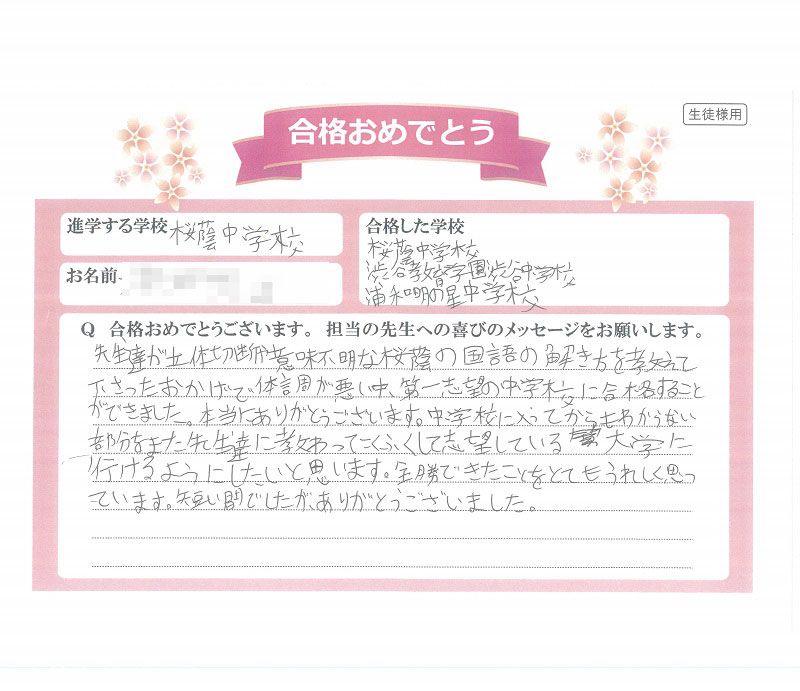 生徒様用
合格おめでとう
進学する学校 桜蔭中学校
お名前
合格した学校
桜蔭中学校
渋谷教育学園渋谷中学校
浦和明の星中学校
Q 合格おめでとうございます。 担当の先生への喜びのメッセージをお願いします。
先生達が立体切断や意味不明な桜蔭の国語の解き方を教えて
下さったおかげで体調が悪い中、第一志望の中学校に合格すること
ができました。本当にありがとうございます。中学校に入ってからもわからない
部分をまた先生達に教わってこくふくして志望している大学に
行けるようにしたいと思います。全勝できたことをとてもうれしく思っ
ています。短い間でしたが、ありがとうございました。